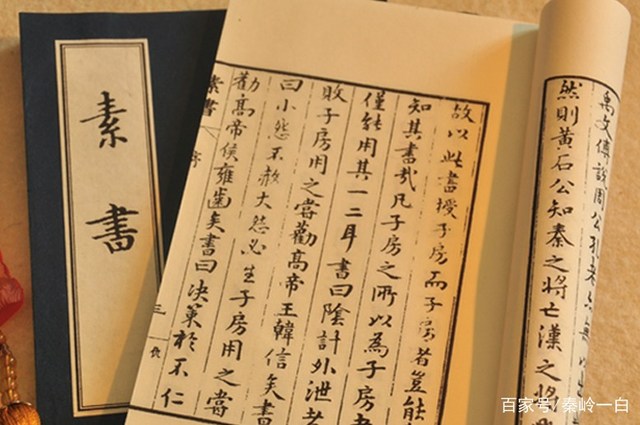 禹文傅說周公孔老亦無以
然則黃石公知秦之將亡漢之將
故以此書授子房而子房者豈能
知其書哉凡子房之所以為子房者
僅能用其一二耳書曰陰計外泄者
敗子房用之嘗勸高帝王韓信矣書
曰小怨不赦大怨必生子房用之嘗
勸高帝侯雍齒矣書曰決策於不仁
素書 序 三
素書
百家号/秦岭一白